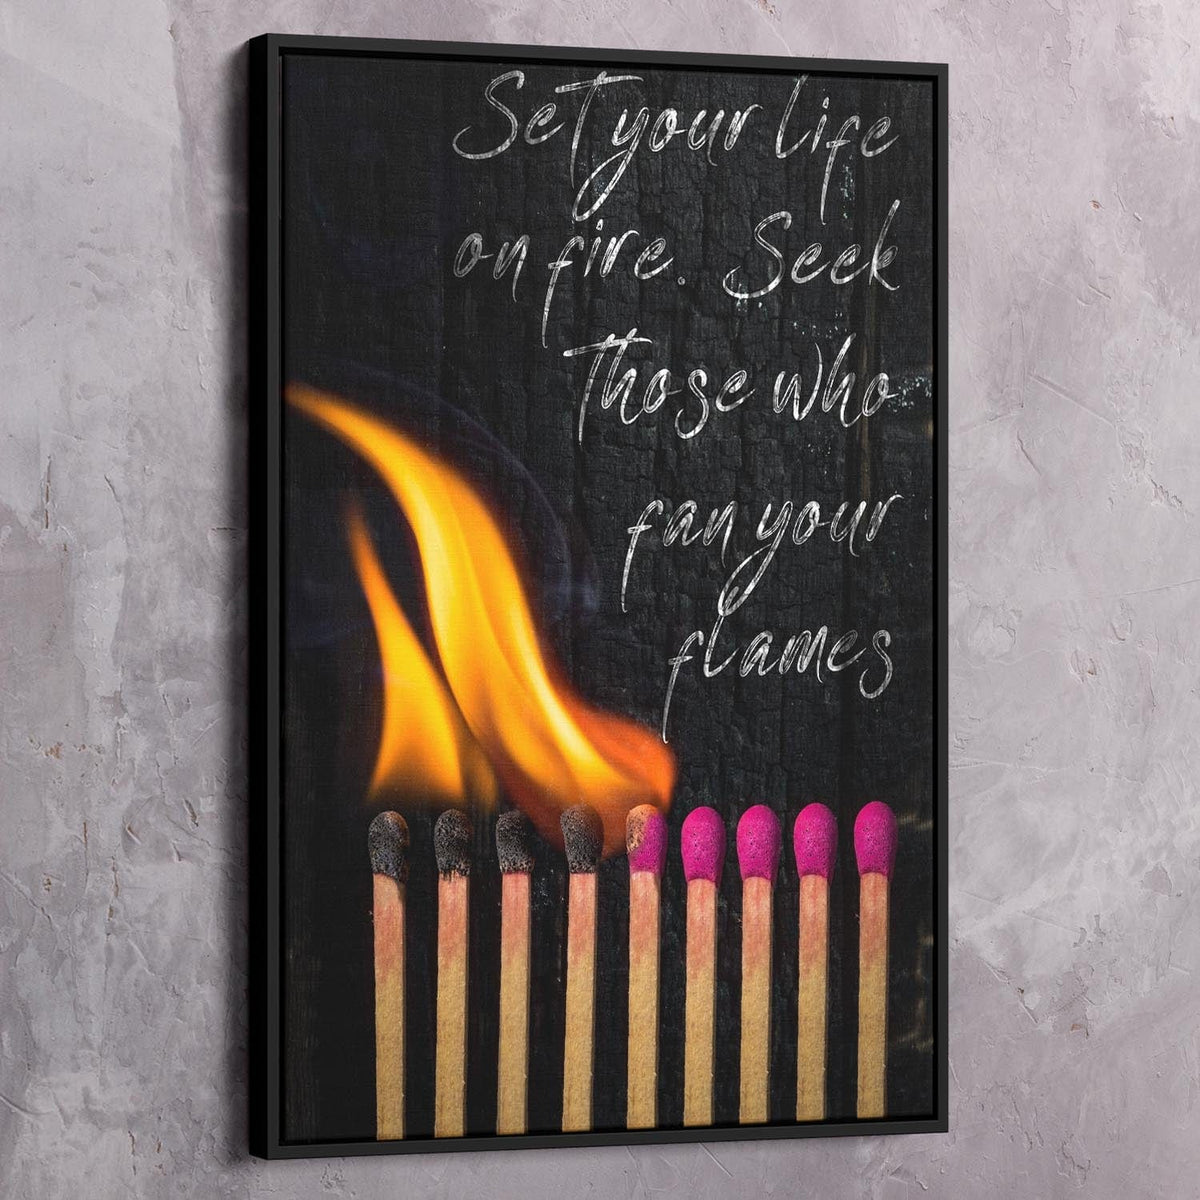 Set your life
on fire. Seek
Those who
fan your
flames